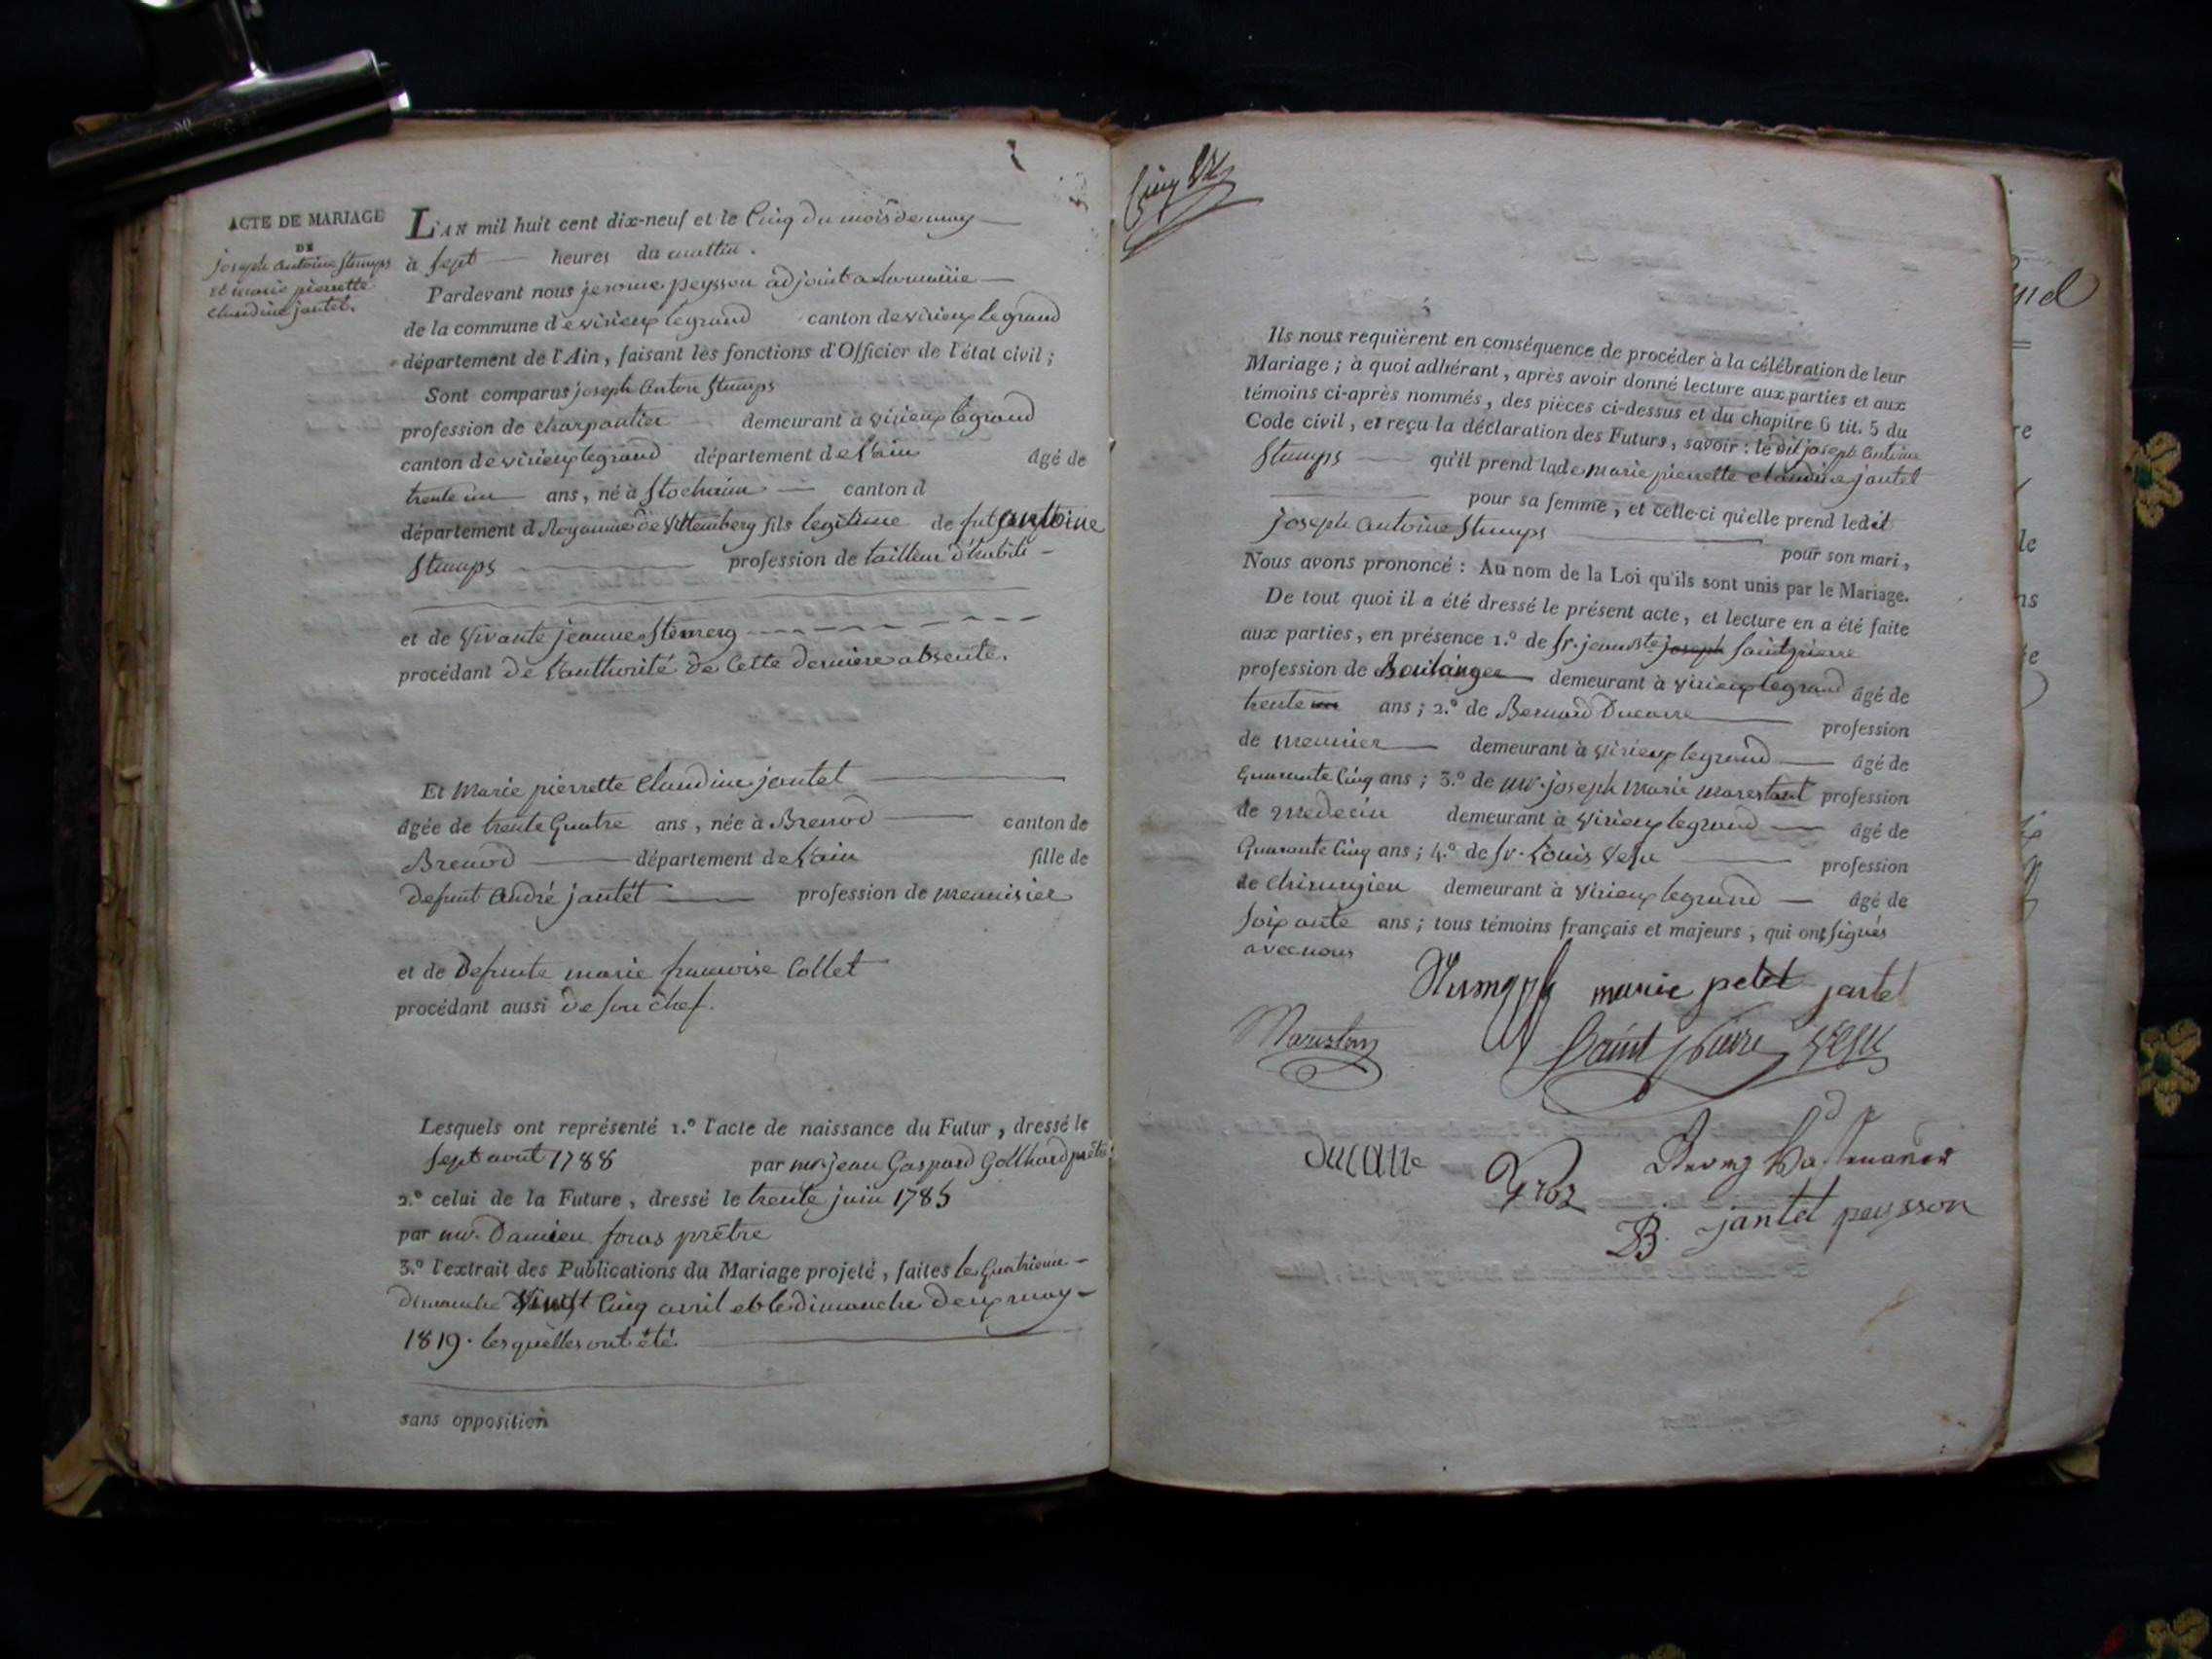 ACTE DE MARIAGE
DE
joseph antoine Stumps
Et marie pierrette
Claudine jantet.
L'AN mil huit cent dix-neuf et le Cinq du mois de may
à Sept heures du mattin.
Pardevant nous jerome peysson adjoint a la mairie
de la commune de virieux legrand canton de virieux le grand
département de l'Ain, faisant les fonctions d'Officier de l'état civil;
Sont comparus joseph Anton Stumps
profession de charpantier demeurant à virieux legrand
canton de virieux legrand département de L'ain âgé de
trente un ans, né à Stocheim canton d
département d Royaume de Vittemberg fils legitime de fut antoine
Stumps profession de tailleur d'habits
et de vivante jeanne Stemerg
procédant de L'authorité de Cette derniere absente.
Et Marie pierrette Claudine jantet
âgée de trente Quatre ans, née à Brenod canton de
Brenod département de L'ain fille de
defunt andré jantet profession de menuisier
et de defunte marie francoise Collet
procédant aussi de son chef.
Lesquels ont représenté 1.º l'acte de naissance du Futur, dressé le
Sept avut 1788 par mr. jean Gaspard Gollhard prêtre
2.º celui de la Future, dressé le trente juin 1785
par mr. Damien foras prêtre
3.º l'extrait des Publications du Mariage projeté, faites le Quatrieme
Dimanche vingt Cinq avril et le dimanche deux may
1819. lesquelles ont été
sans opposition
Ils nous requièrent en conséquence de procéder à la célébration de leur
Mariage; à quoi adhérant, après avoir donné lecture aux parties et aux
témoins ci-après nommés, des pièces ci-dessus et du chapitre 6 tit. 5 du
Code civil, et reçu la déclaration des Futurs, savoir: le dit joseph antoine
Stumps qu'il prend lade marie pierrette claudine jantet
pour sa femme, et celle-ci qu'elle prend ledit
joseph antoine Stumps pour son mari,
Nous avons prononcé: Au nom de la Loi qu'ils sont unis par le Mariage.
De tout quoi il a été dressé le présent acte, et lecture en a été faite
aux parties, en présence 1.º de Sr. jean Bte joseph Saintpierre
profession de Boulanger demeurant à virieux legrand âgé de
trente un ans; 2.º de Bernard Ducarre profession
de meunier demeurant à virieux legrand âgé de
Quarante Cinq ans; 3.º de mr. joseph Marie marestant profession
de medecin demeurant à virieux legrand âgé de
Quarante Cinq ans; 4.º de Sr. Louis Vesu profession
de Chirurgien demeurant à virieux legrand âgé de
Soixante ans; tous témoins français et majeurs, qui ont signés
avec nous
marie petit jantet
Saint pierre Vesu
ducarre
B. jantet peysson